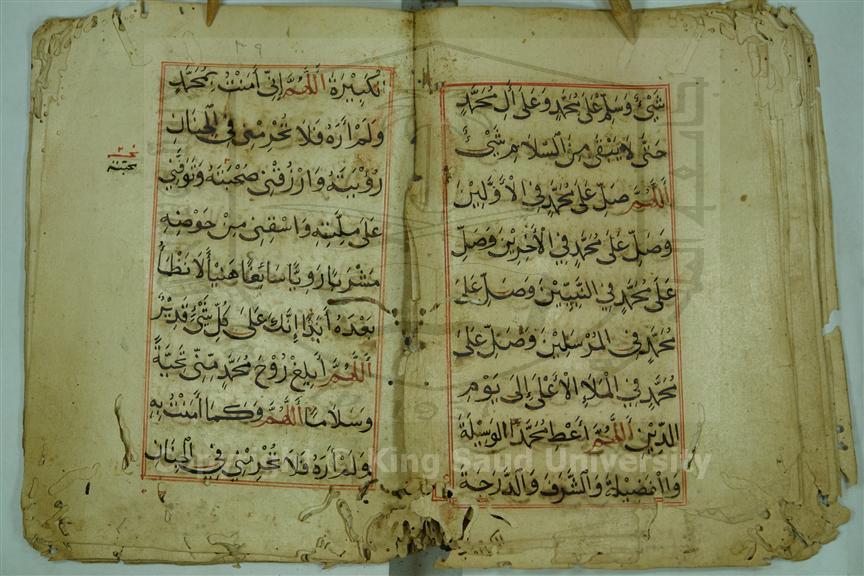 شَيْءٌ وَسَلِّمْ عَلٰى مُحَمَّدٍ وَعَلٰى اٰلِ مُحَمَّدٍ
حَتّٰى لَا يَبْقٰى مِنَ السَّلَامِ شَيْءٌ
اَللّٰهُمَّ صَلِّ عَلٰى مُحَمَّدٍ فِي الْاَوَّلِيْنَ
وَصَلِّ عَلٰى مُحَمَّدٍ فِي الْاٰخِرِيْنَ وَصَلِّ
عَلٰى مُحَمَّدٍ فِي النَّبِيِّيْنَ وَصَلِّ عَلٰى
مُحَمَّدٍ فِي الْمُرْسَلِيْنَ وَصَلِّ عَلٰى
مُحَمَّدٍ فِي الْمَلَاءِ الْاَعْلٰى اِلٰى يَوْمِ
الدِّيْنِ اَللّٰهُمَّ اَعْطِ مُحَمَّدًا الْوَسِيْلَةَ
وَالْفَضِيْلَةَ وَالشَّرَفَ وَالدَّرَجَةَ
٣٩
كَبِيْرَةَ اَللّٰهُمَّ اِنِّي اٰمَنْتُ بِمُحَمَّدٍ
وَلَمْ اَرَهُ فَلَا تَحْرِمْنِي فِي الْجِنَانِ
رُؤْيَتَهُ وَارْزُقْنِي صُحْبَتَهُ وَتَوَفَّنِي
عَلٰى مِلَّتِهِ وَاسْقِنِي مِنْ حَوْضِهِ
مَشْرَبًا رَوِيًّا سَائِغًا هَنِيْأً لَا نَظْمَأُ
بَعْدَهُ اَبَدًا اِنَّكَ عَلٰى كُلِّ شَيْءٍ قَدِيْرٌ
اَللّٰهُمَّ اَبْلِغْ رُوْحَ مُحَمَّدٍ مِنِّي تَحِيَّةً
وَسَلَامًا اَللّٰهُمَّ وَكَمَا اٰمَنْتُ بِهِ
وَلَمْ اَرَهُ فَلَا تَحْرِمْنِي فِي الْجِنَانِ
King Saud University